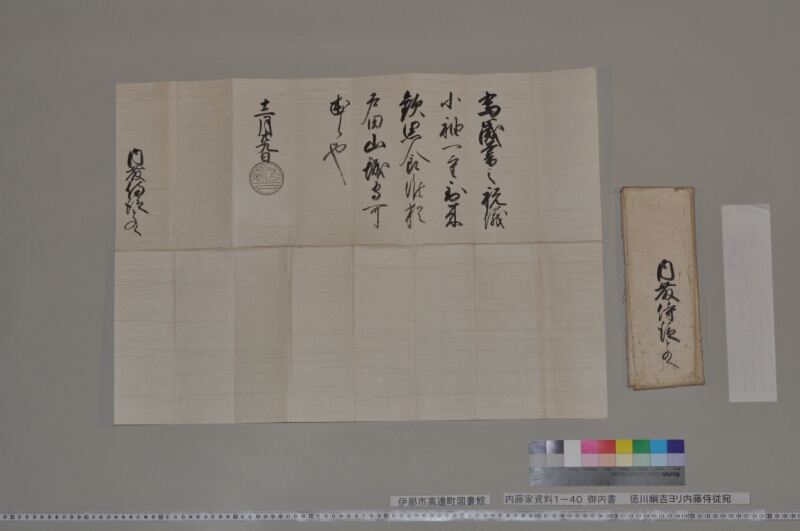 為歳暮之祝儀
小袖一重到来
歓思食候猶
戸田山城守可
述候也
十二月廿九日
内藤侍従とのへ
内藤侍従とのへ
伊那市高遠町図書館
内藤家資料1-40 御内書 徳川綱吉ヨリ内藤侍従宛